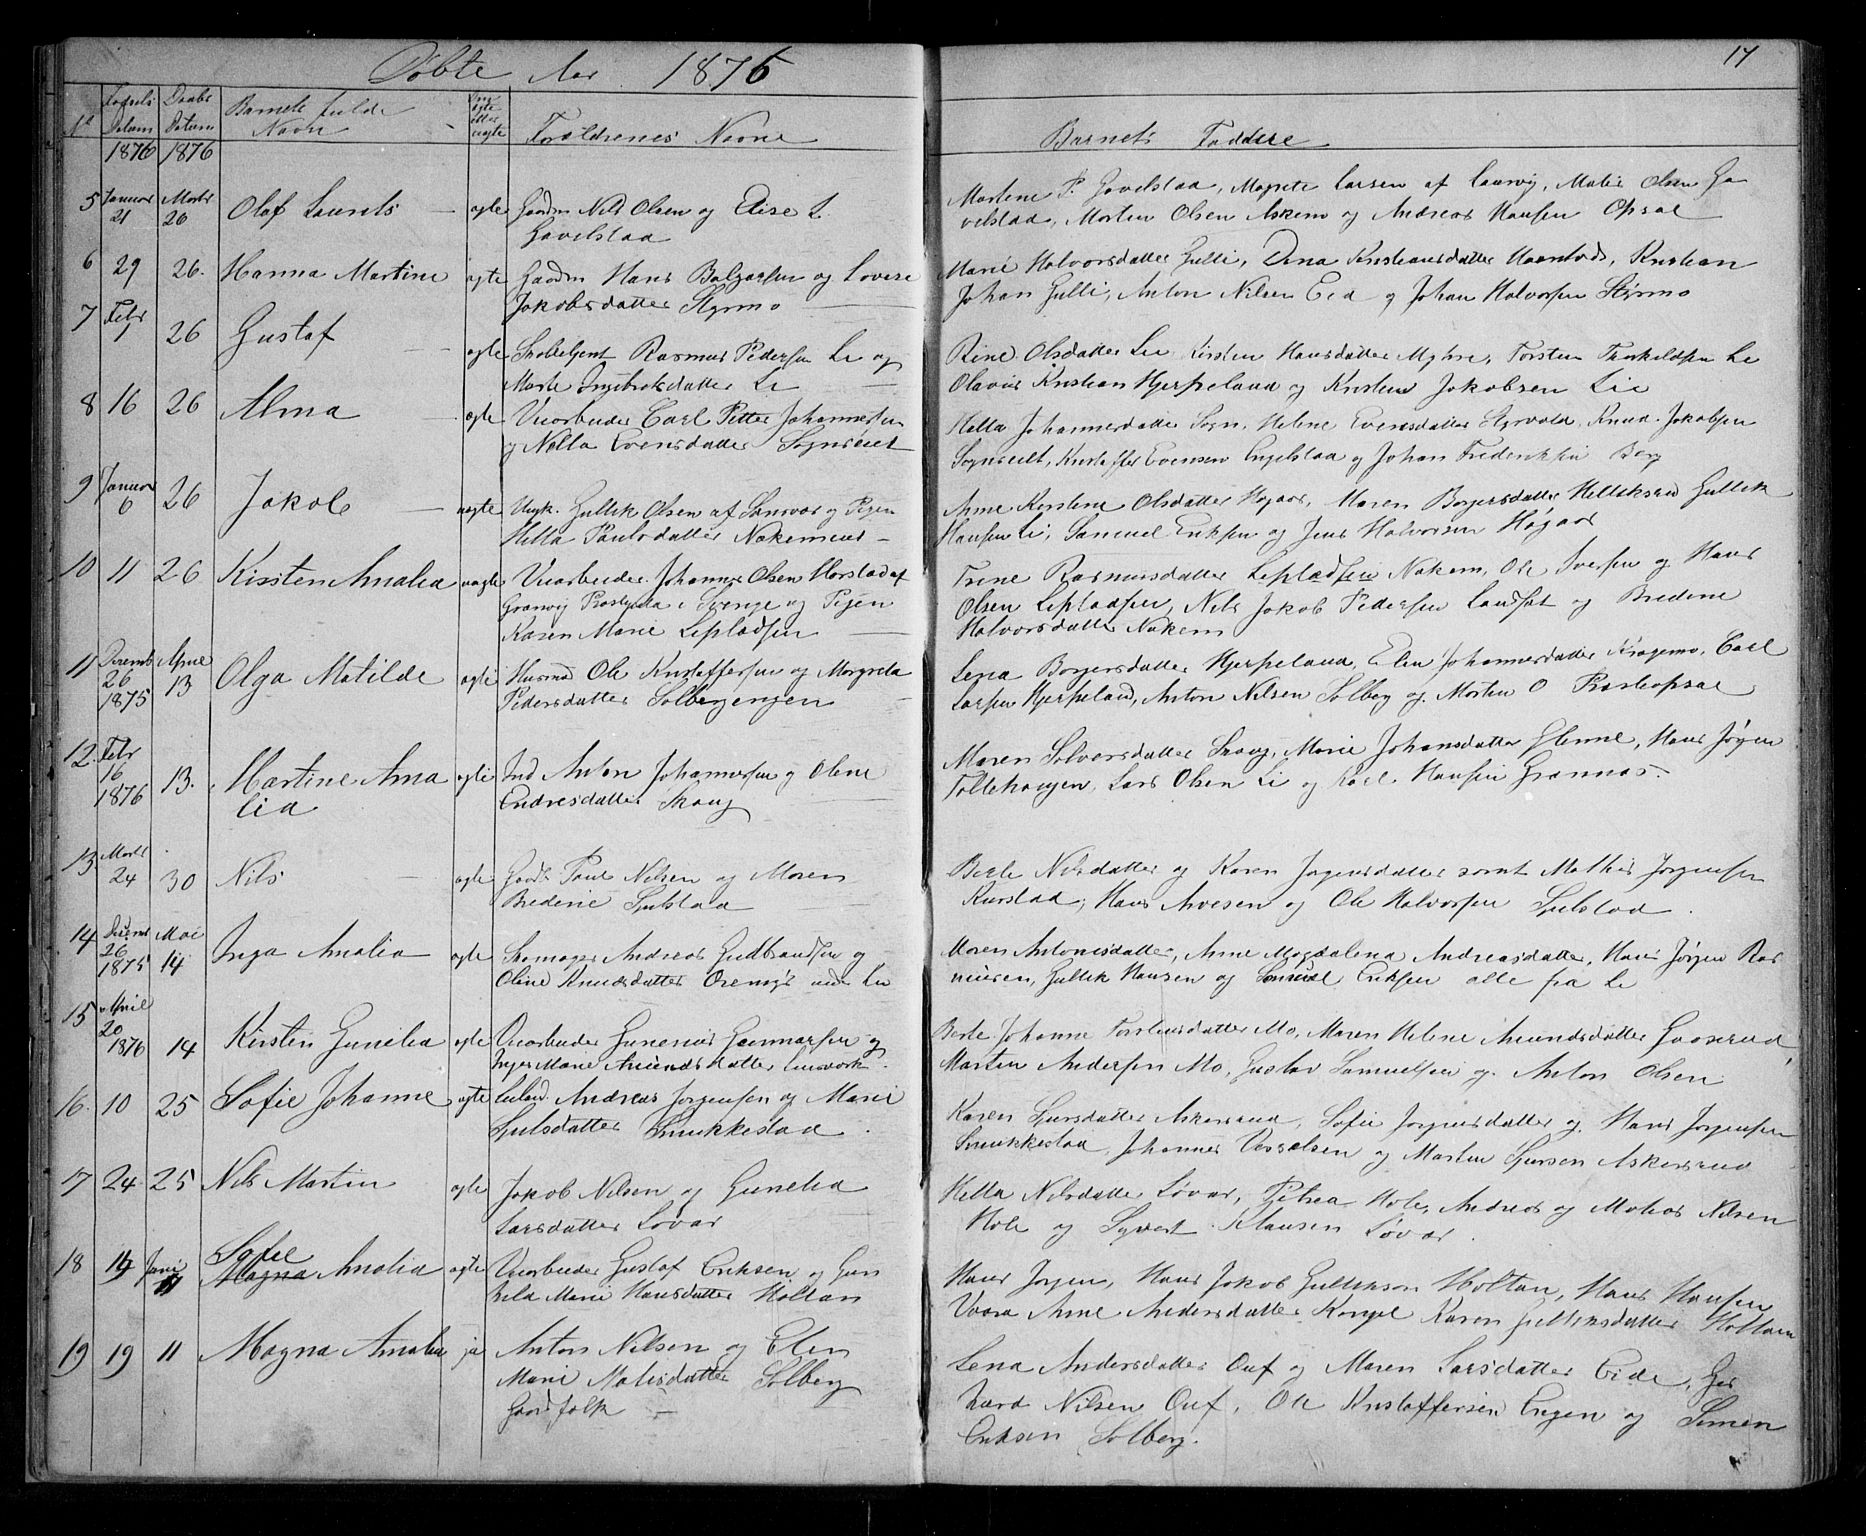 Døbte Aar 1876
17
No Fødsels Datum Daabs Datum Barnets fulde Navn Om ægte eller uægte Forældrenes Navne Barnets Faddere
1876 1876
5 Januar 21 Marts 26 Olaf Laurits ægte Gaardm Nils Olsen og Elise L. Gavelstad
Martene P. Gavelstad, Magrete Larsen af Laurvig, Matie Olsen Ga
velstad, Morten Olsen Askem og Andreas Hansen Opsal
6 29 26. Hanna Martine ægte Gaardm Hans Balzersen og Lovise
Jakobsdatter Styrmo
Marie Halvorsdatter Gulli, Dina Kristiansdatter Haanlods, Kristian
Johan Gulli, Anton Nilsen Eid og Johan Halvorsen Styrmo
7 Febr 7 26 Gustaf ægte Skolebetjent Rasmus Pedersen Li og
Marte Ingebretsdatter Li
Rine Olsdatter Lie Kirsten Hansdatter Myhre, Torsten Torkildsen Li
Olavus Kristian Hjerpeland og Kristen Jakobsen Lie
8 16 26 Alma ægte Veiarbeider Carl Petter Johannessen
og Netta Evensdatter Sognsæet
Hella Johannesdatter Sogn, Helene Evensdatter Styrvold, Knud Jakobsen
Sognseet, Kristoffer Evensen Engelstad og Johan Frederiksen Berg
9 Januar 6 26 Jakob uægte Ungk. Gullik Olsen af Sansvær og Pigen
Hella Paulsdatter Nakemeie
Anne Kirstine Olsdatter Høgaas, Maren Borgersdatter Helliksrud Gullik
Hansen Li, Samuel Eriksen og Jens Halvorsen Høgaas
10 11 26 Kirsten Amalia uægte Veiarbeider Johannes Olsen Horstad af
Granvig Prestegield i Sverige og Pigen
Karen Marie Lepladsen
Trine Rasmusdatter Lepladsen Nakem, Ole Iversen og Hans
Olsen Lepladsen, Nils Jakob Pedersen Landfat og Bredine
Halvorsdatter Nakem
11 Decemb 26 1875 April 13 Olga Matilde ægte Husmd Ole Kristoffersen og Margreta
Pedersdatter Solbergengen
Lena Borgersdatter Hjerpeland, Elen Johannesdatter Kragemo, Carl
Larsen Hjerpeland, Anton Nilsen Solberg og Morten O Præsteopsal
12. Febr 16 1876 13. Martine Ama
lia ægte Ind Anton Johannessen og Oline
Endresdatter Skaug
Maren Solversdatter Skaug, Marie Johansdatter Glenne, Hans Jørgen
Tollehaugen, Lars Olsen Li og Karl Hansen Grannæs.
13 Marts 24 30 Nils ægte Gaardb Paul Nilsen og Maren
Bredine Sjulstad
Berte Nilsdatter og Karen Jørgensdatter samt Mathis Jørgensen
Rurstad, Hans Arvesen og Ole Halvorsen Sjulstad
14 Decemb 26 1875 Mai 14 Inga Amalia ægte Skomager Andreas Gulbrandsen og
Oline Knudsdatter Øremyr under Lie
Maren Antonisdatter, Anne Magdalena Andreasdatter, Hans Jørgen Ras
musen, Gullik Hansen og Samuel Eriksen alle fra Li
15 April 20 1876 14 Kirsten Gunelia ægte Veiarbeider Gunerius Gunnarsen og
Inger Marie Amundsdatter Linsværk.
Berte Johanne Torstensdatter Mo, Maren Helene Amundsdatter Gaaserud,
Martin Andersen Mo, Gustav Samuelsen og Anton Olsen
16. 10 25 Sofie Johanne ægte Leilnd Andreas Jørgensen og Marie
Sjulsdatter Snukkestad.
Karen Sjursdatter Askersrud, Sofie Jørgensdatter og Hans Jørgensen
Snukkestad, Johannes Vesselsen og Martin Sjursen Askersrud
17 24 25 Nils Martin ægte Jakob Nilsen og Gunelia
Larsdatter Løvar
Hella Nilsdatter Løvar, Petrea Hole, Andreas og Mateas Nilsen
Hole og Syvert Klausen Løvar.
18 14 Juni 11 Sofie
Magna Amalia ægte Veiarbeider Gustaf Eriksen og Gun
hild Marie Hansdatter Holtan
Hans Jørgen, Hans Jakob Gulliksen Holtan, Hans Hansen
Vaara Anne Andersdatter Kongel Karen Gulliksdatter Holtan
19 19 11 Magna Amalia ja Anton Nilsen og Elen
Marie Matisdatter Solberg
Gaardfolk
Lena Andersdatter Ouf og Maren Larsdatter Eide, Ger
hard Nilsen Ouf, Ole Kristoffersen Engen og Simen
Eriksen Solberg.